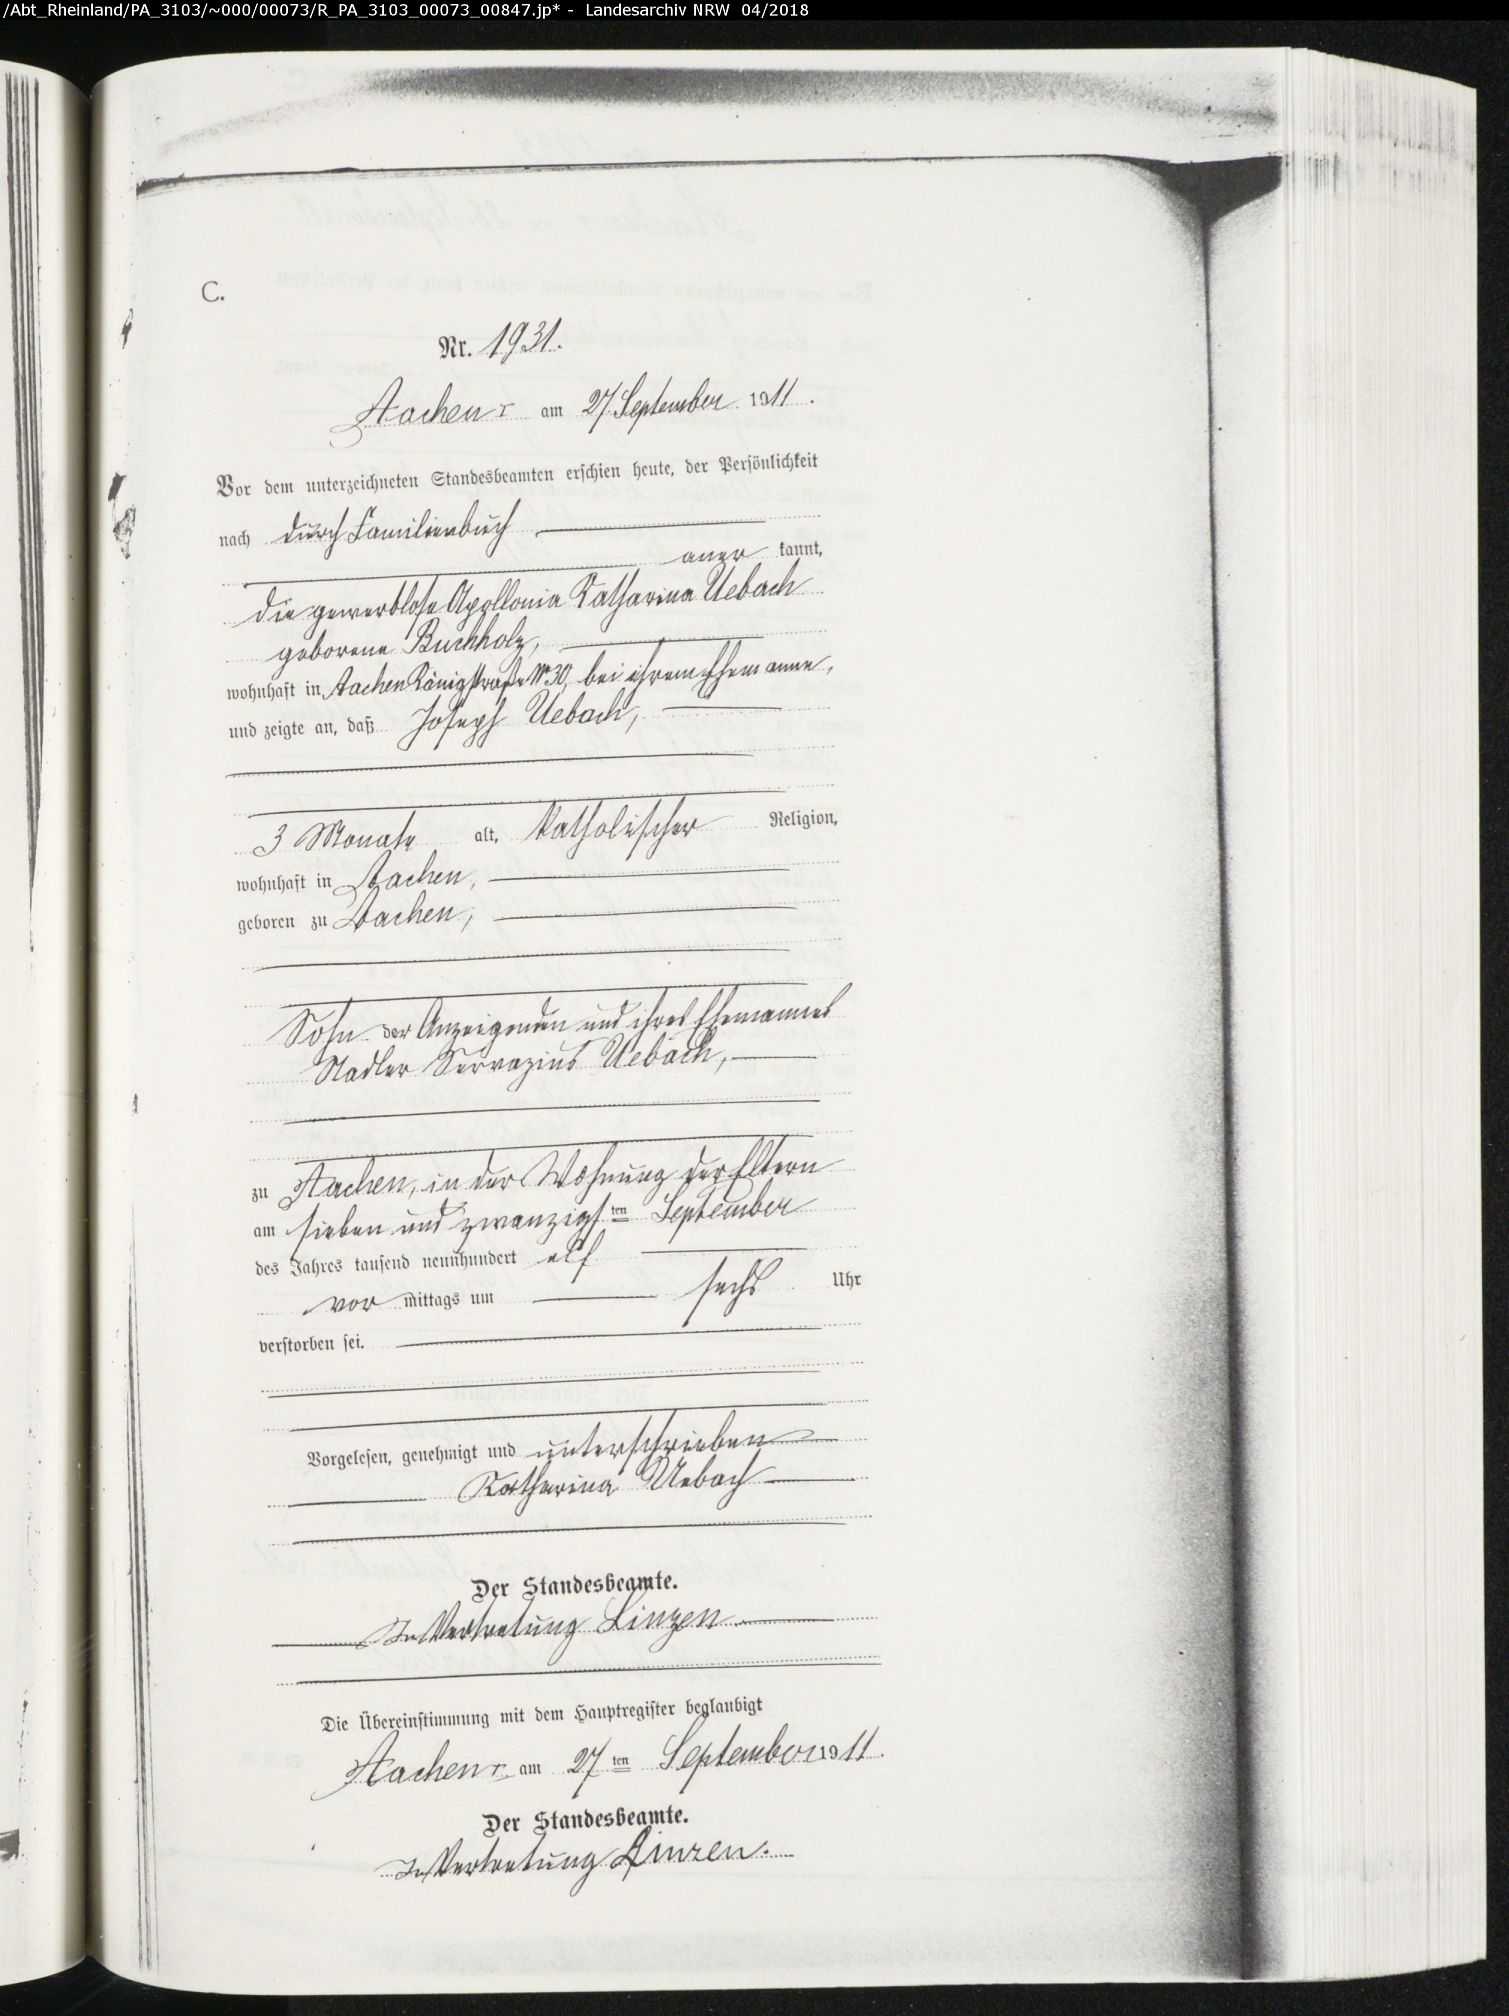 /Abt_Rheinland/PA_3103/~000/00073/R_PA_3103_00073_00847.jp* - Landesarchiv NRW 04/2018
C.
Nr. 1931.
Aachen I am 27. September 1911.
Vor dem unterzeichneten Standesbeamten erschien heute, der Persönlichkeit
nach durch Familienbuch
aner kannt,
die gewerblose Apollonia Katharina Uebach
geborene Buchholz,
wohnhaft in Aachen Königstraße No 30, bei ihrem Ehemanne,
und zeigte an, daß Joseph Uebach,
3 Monate alt, katholischer Religion,
wohnhaft in Aachen,
geboren zu Aachen,
Sohn der Anzeigenden und ihres Ehemannes
Nadler Servazius Uebach,
zu Aachen, in der Wohnung der Eltern
am sieben und zwanzigsten September
des Jahres tausend neunhundert elf
vor mittags um sechs Uhr
verstorben sei.
Vorgelesen, genehmigt und unterschrieben
Katharina Uebach
Der Standesbeamte.
In Vertretung Linzen
Die Übereinstimmung mit dem Hauptregister beglaubigt
Aachen I. am 27ten September 1911.
Der Standesbeamte.
In Vertretung Linzen.